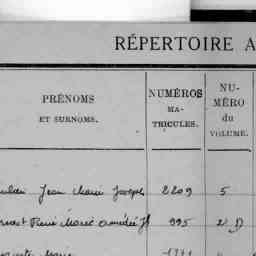 RÉPERTOIRE A
PRÉNOMS
ET SURNOMS.
NUMÉROS
MA-
TRICULES.
NU-
MÉRO
du
VOLUME.
Jean Marie Joseph 2209 5
René Marie 995 2